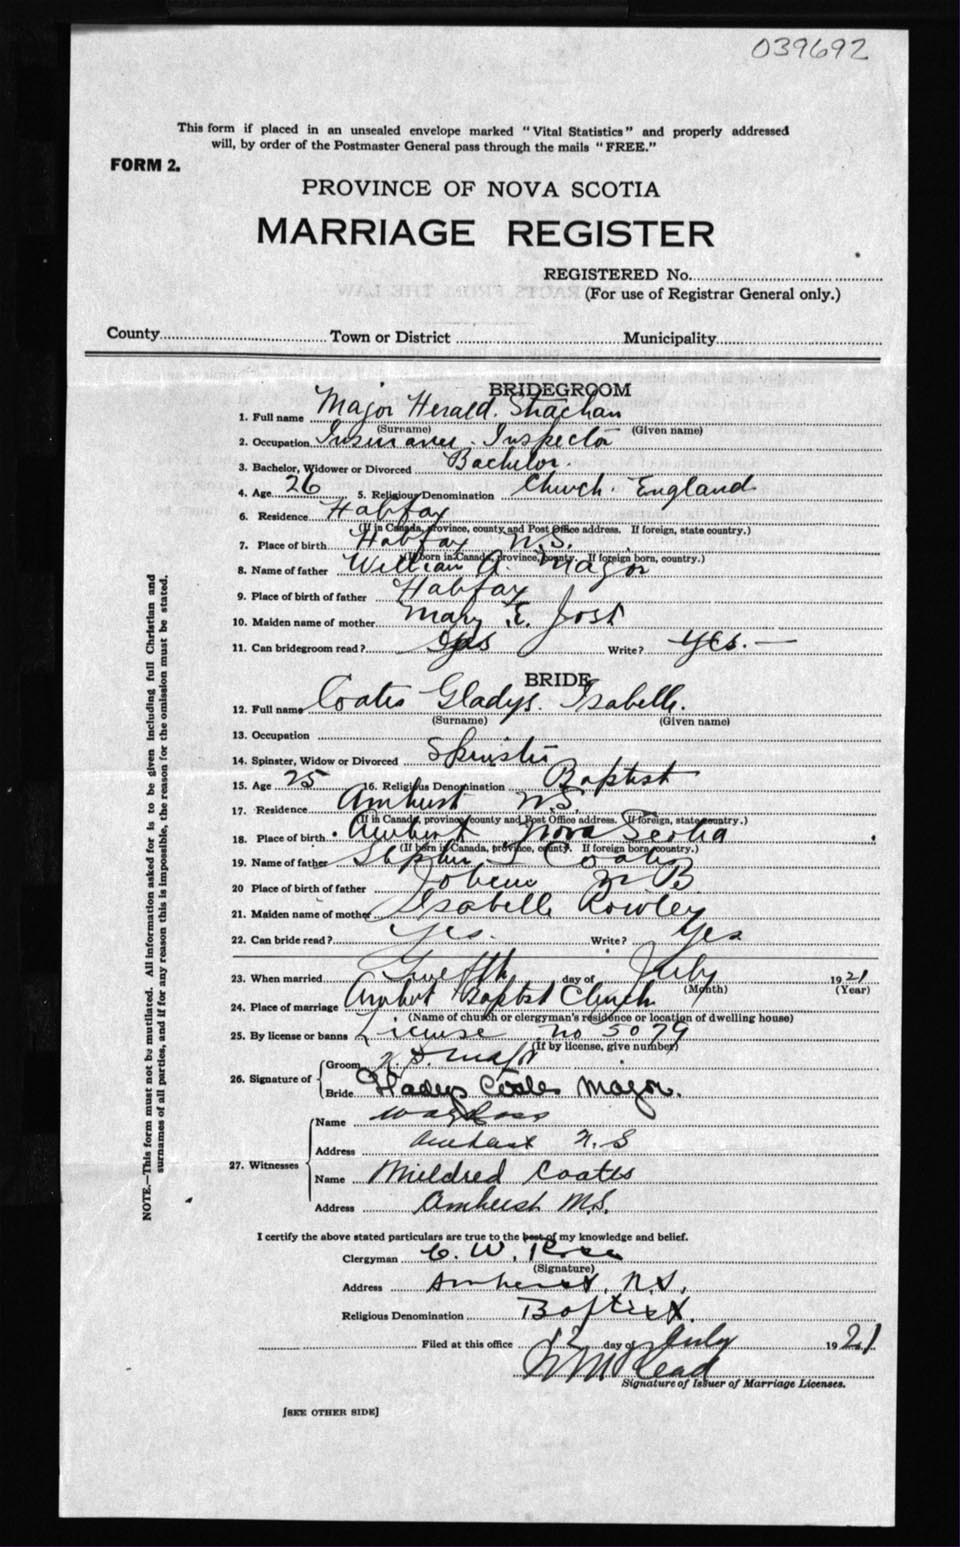 039692
This form if placed in an unsealed envelope marked "Vital Statistics" and properly addressed
will, by order of the Postmaster General pass through the mails "FREE."
FORM 2.
PROVINCE OF NOVA SCOTIA
MARRIAGE REGISTER
REGISTERED No.
(For use of Registrar General only.)
County Town or District Municipality
BRIDEGROOM
1. Full name Major Herald. Strachan
(Surname) (Given name)
2. Occupation Insurance Inspector
3. Bachelor, Widower or Divorced Bachelor.
4. Age 26 5. Religious Denomination Church England
6. Residence Halifax
(If in Canada, province, county and Post Office address. If foreign, state country.)
7. Place of birth Halifax N.S.
(If born in Canada, province, county. If foreign born, country.)
8. Name of father William A. Major
9. Place of birth of father Halifax
10. Maiden name of mother Mary E. Jost
11. Can bridegroom read? Yes Write? Yes.—
BRIDE
12. Full name Coates Gladys. Isabelle.
(Surname) (Given name)
13. Occupation
14. Spinster, Widow or Divorced Spinster
15. Age 25 16. Religious Denomination Baptist
17. Residence Amherst N.S.
(If in Canada, province county and Post Office address. If foreign, state country.)
18. Place of birth Amherst Nova Scotia
(If born in Canada, province, county. If foreign born, country.)
19. Name of father Coates
20 Place of birth of father N B
21. Maiden name of mother Isabelle Rowley
22. Can bride read? Yes. Write? Yes
23. When married Twelfth day of July 1921
(Month) (Year)
24. Place of marriage Amherst Baptist Church
(Name of church or clergyman's residence or location of dwelling house)
25. By license or banns License no 5079
(If by license, give number)
26. Signature of Groom H. S. Major
Bride Gladys Coates Major.
27. Witnesses
Name
Address Amherst N.S
Name Mildred Coates
Address Amherst N.S.
I certify the above stated particulars are true to the best of my knowledge and belief.
Clergyman C. W. Rose
(Signature)
Address Amherst, N.S.
Religious Denomination Baptist.
Filed at this office 12 day of July 1921
Signature of Issuer of Marriage Licenses.
[SEE OTHER SIDE]
NOTE.—This form must not be mutilated. All information asked for is to be given including full Christian and
surnames of all parties, and if for any reason this is impossible, the reason for the omission must be stated.